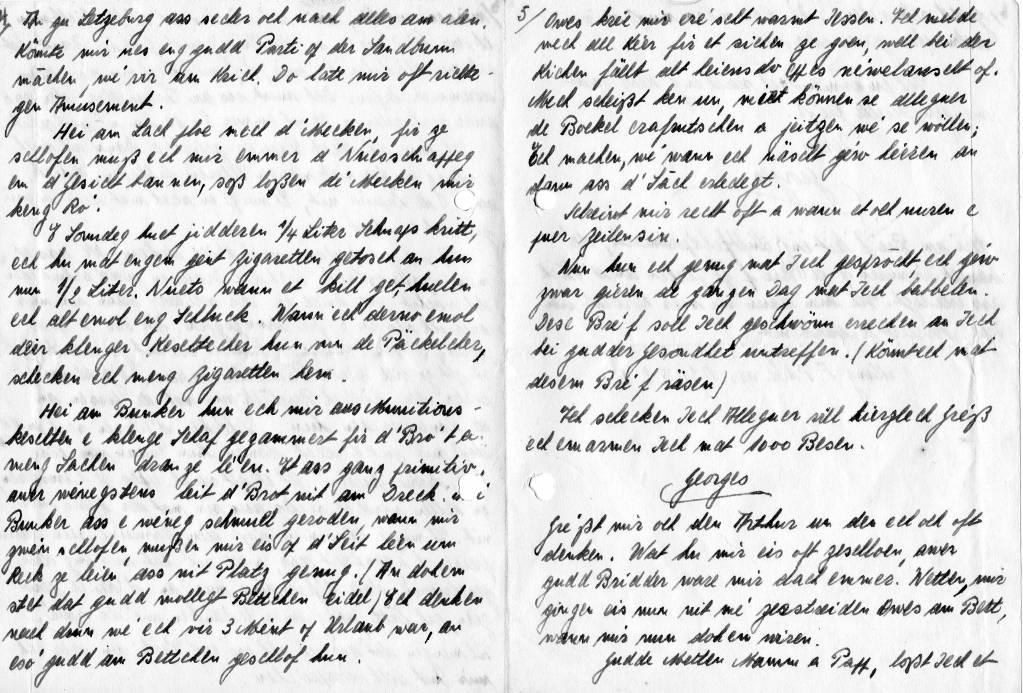 4/ An zu Letzeburg ass secher och nach alles am alen.
Kömte mir nes eng gudd Parti op der Landbunn
machen, wé vir am Krich. Do hate mir oft richte-
gen Amusement.
Hei am Lach hu mech d'Mécken, fir ze
schlofen muß ech mir emmer d'
em d'Gesicht bannen, soß loßen dé Mecken mir
keng Ro'.
8 Somdeg huet jidderen 1/4 Liter Schnaps kritt,
ech hu mat engem geit Zigaretten getosch an hun
nun 1/2 Liter. Nuets wann et kill get huelen
ech alt emol eng Schluck. Wann ech derno emol
déi klenger Keseltecher hun vun de Päckelcher,
schecken ech meng Zigaretten hem.
Hei am Bunker hun ech mir aus Munitiouns-
keseltten e klenge Schaf gezammert fir d'Bro't a
meng Sachen dran ze léen. Et ass ganz primitiv,
awer wénegstens leit d'Brot nit am Dreck.
Bunker ass e wéneg schmuell geroden, wann mir
zwéin schlofen mußen mir eis op d'Seit léen um
Reck ze leien ass nit Platz genug. (An dohem
stet dat gudd mollegt Bettchen eidel) Ech denken
nach drun wé ech vir 3 Méint op Urlaub war, an
esó gudd am Bettchen geschlof hun.
5/ Owes krie mir eré selt warmt Iessen. Ech melde
mech all Kéier fir et sichen ze goen, well bei der
Kichen fällt alt leiensdo eppes néwelanselt of.
Mech scheißt ken un, mént können se alleguer
de Bockel erafrutschen a jeitzen wé se wöllen;
Ech machen, wé wann ech näselt géw héieren an
dann ass d'Säch erledegt.
Schreiwt mir recht oft a wann et och nuren e
puer Zeilen sin.
Nun hun ech genug mat Iech gesprocht ech géw
zwar gieren de ganzen Dag mat Iech babbelen.
Dese Bréf soll Iech geschwönn errechen an Iech
bei gudder Gesondhet untreffen. (Könnt ech mat
desem Bréf räsen)
Ech schecken Iech Alleguer vill hierzlech Gréiß
ech emarmen Iech mat 1000 Besen.
Georges
Gréißt mir och den Arthur un den ech och oft
denken. Wat hu mir eis oft geschloen, awer
gudd Bridder ware mir dach emmer. Wetten, mir
gingen eis nun nit mé zerstreiden Owes am Bett,
wann mir nun dohem wiren.
Gudde Metten Mamm a Papp, loßt Iech et